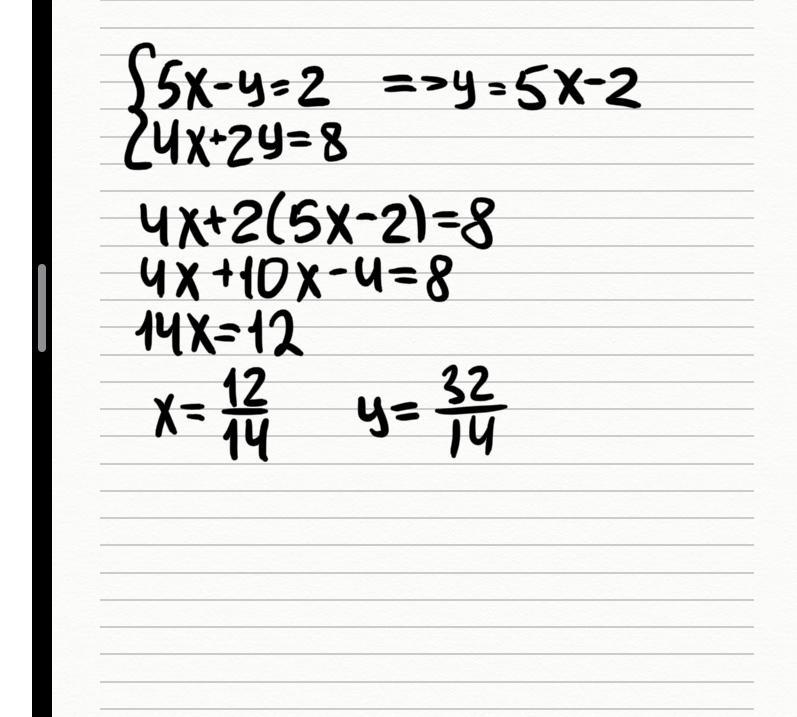 {5x-y=2 => y=5x-2
4x+2y=8
4x+2(5x-2)=8
4x+10x-4=8
14x=12
x=12/14 y=32/14